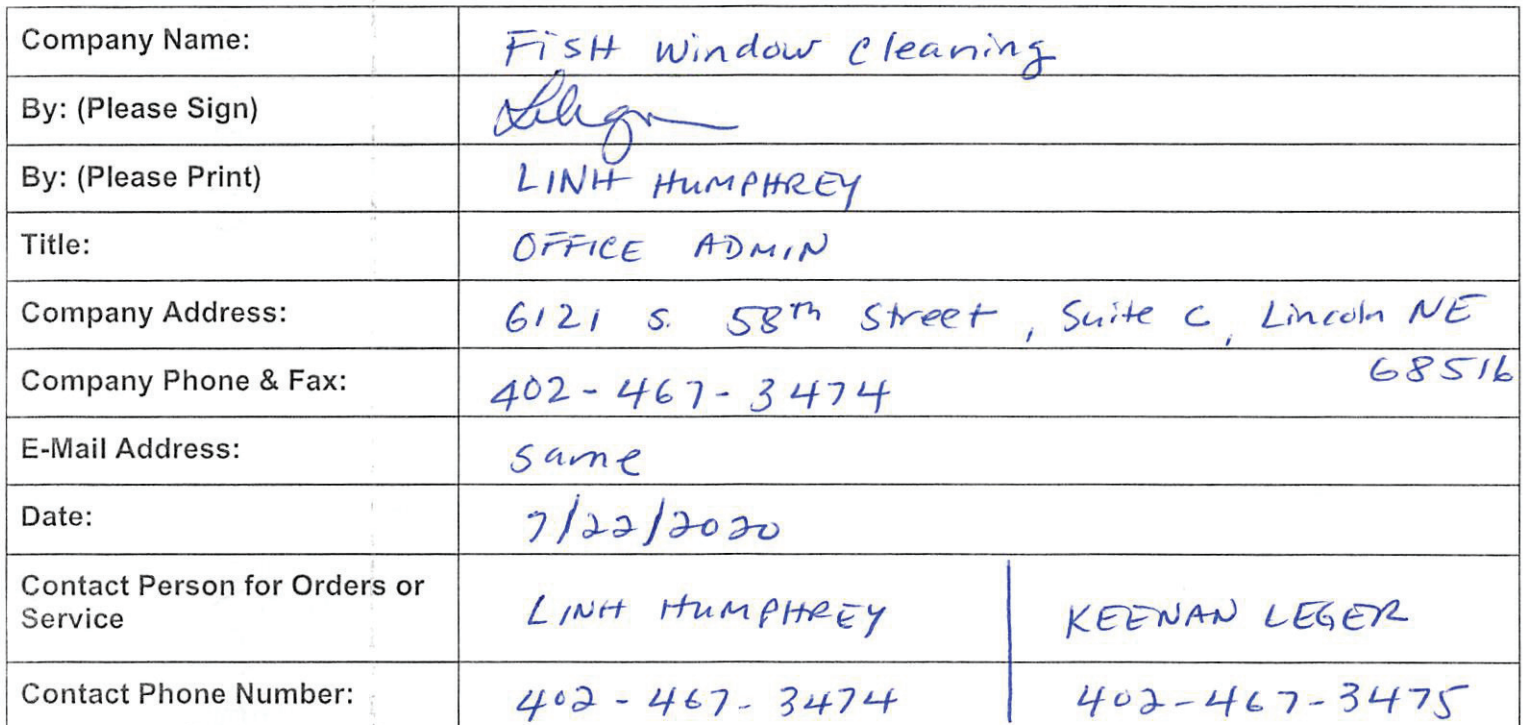 Company Name: Fish Window Cleaning
By: (Please Sign)
By: (Please Print) LINH HUMPHREY
Title: OFFICE ADMIN
Company Address: 6121 S. 58th Street, Suite C, Lincoln NE
68516
Company Phone & Fax: 402-467-3474
E-Mail Address: same
Date: 7/22/2020
Contact Person for Orders or
Service LINH HUMPHREY KEENAN LEGER
Contact Phone Number: 402-467-3474 402-467-3475